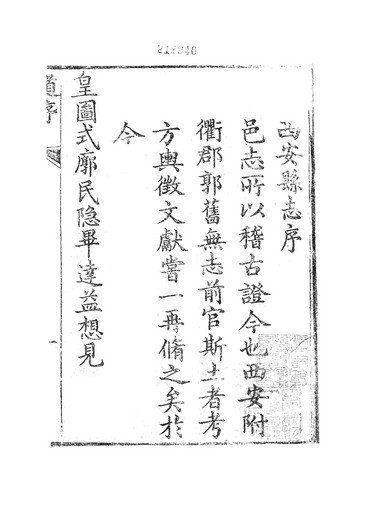 212946
西安縣志序
邑志所以稽古證今也西安附
衢郡郭舊無志前官斯土者考
方輿徵文獻嘗一再脩之矣於
今
皇圖式廓民隐畢達益想見
道序